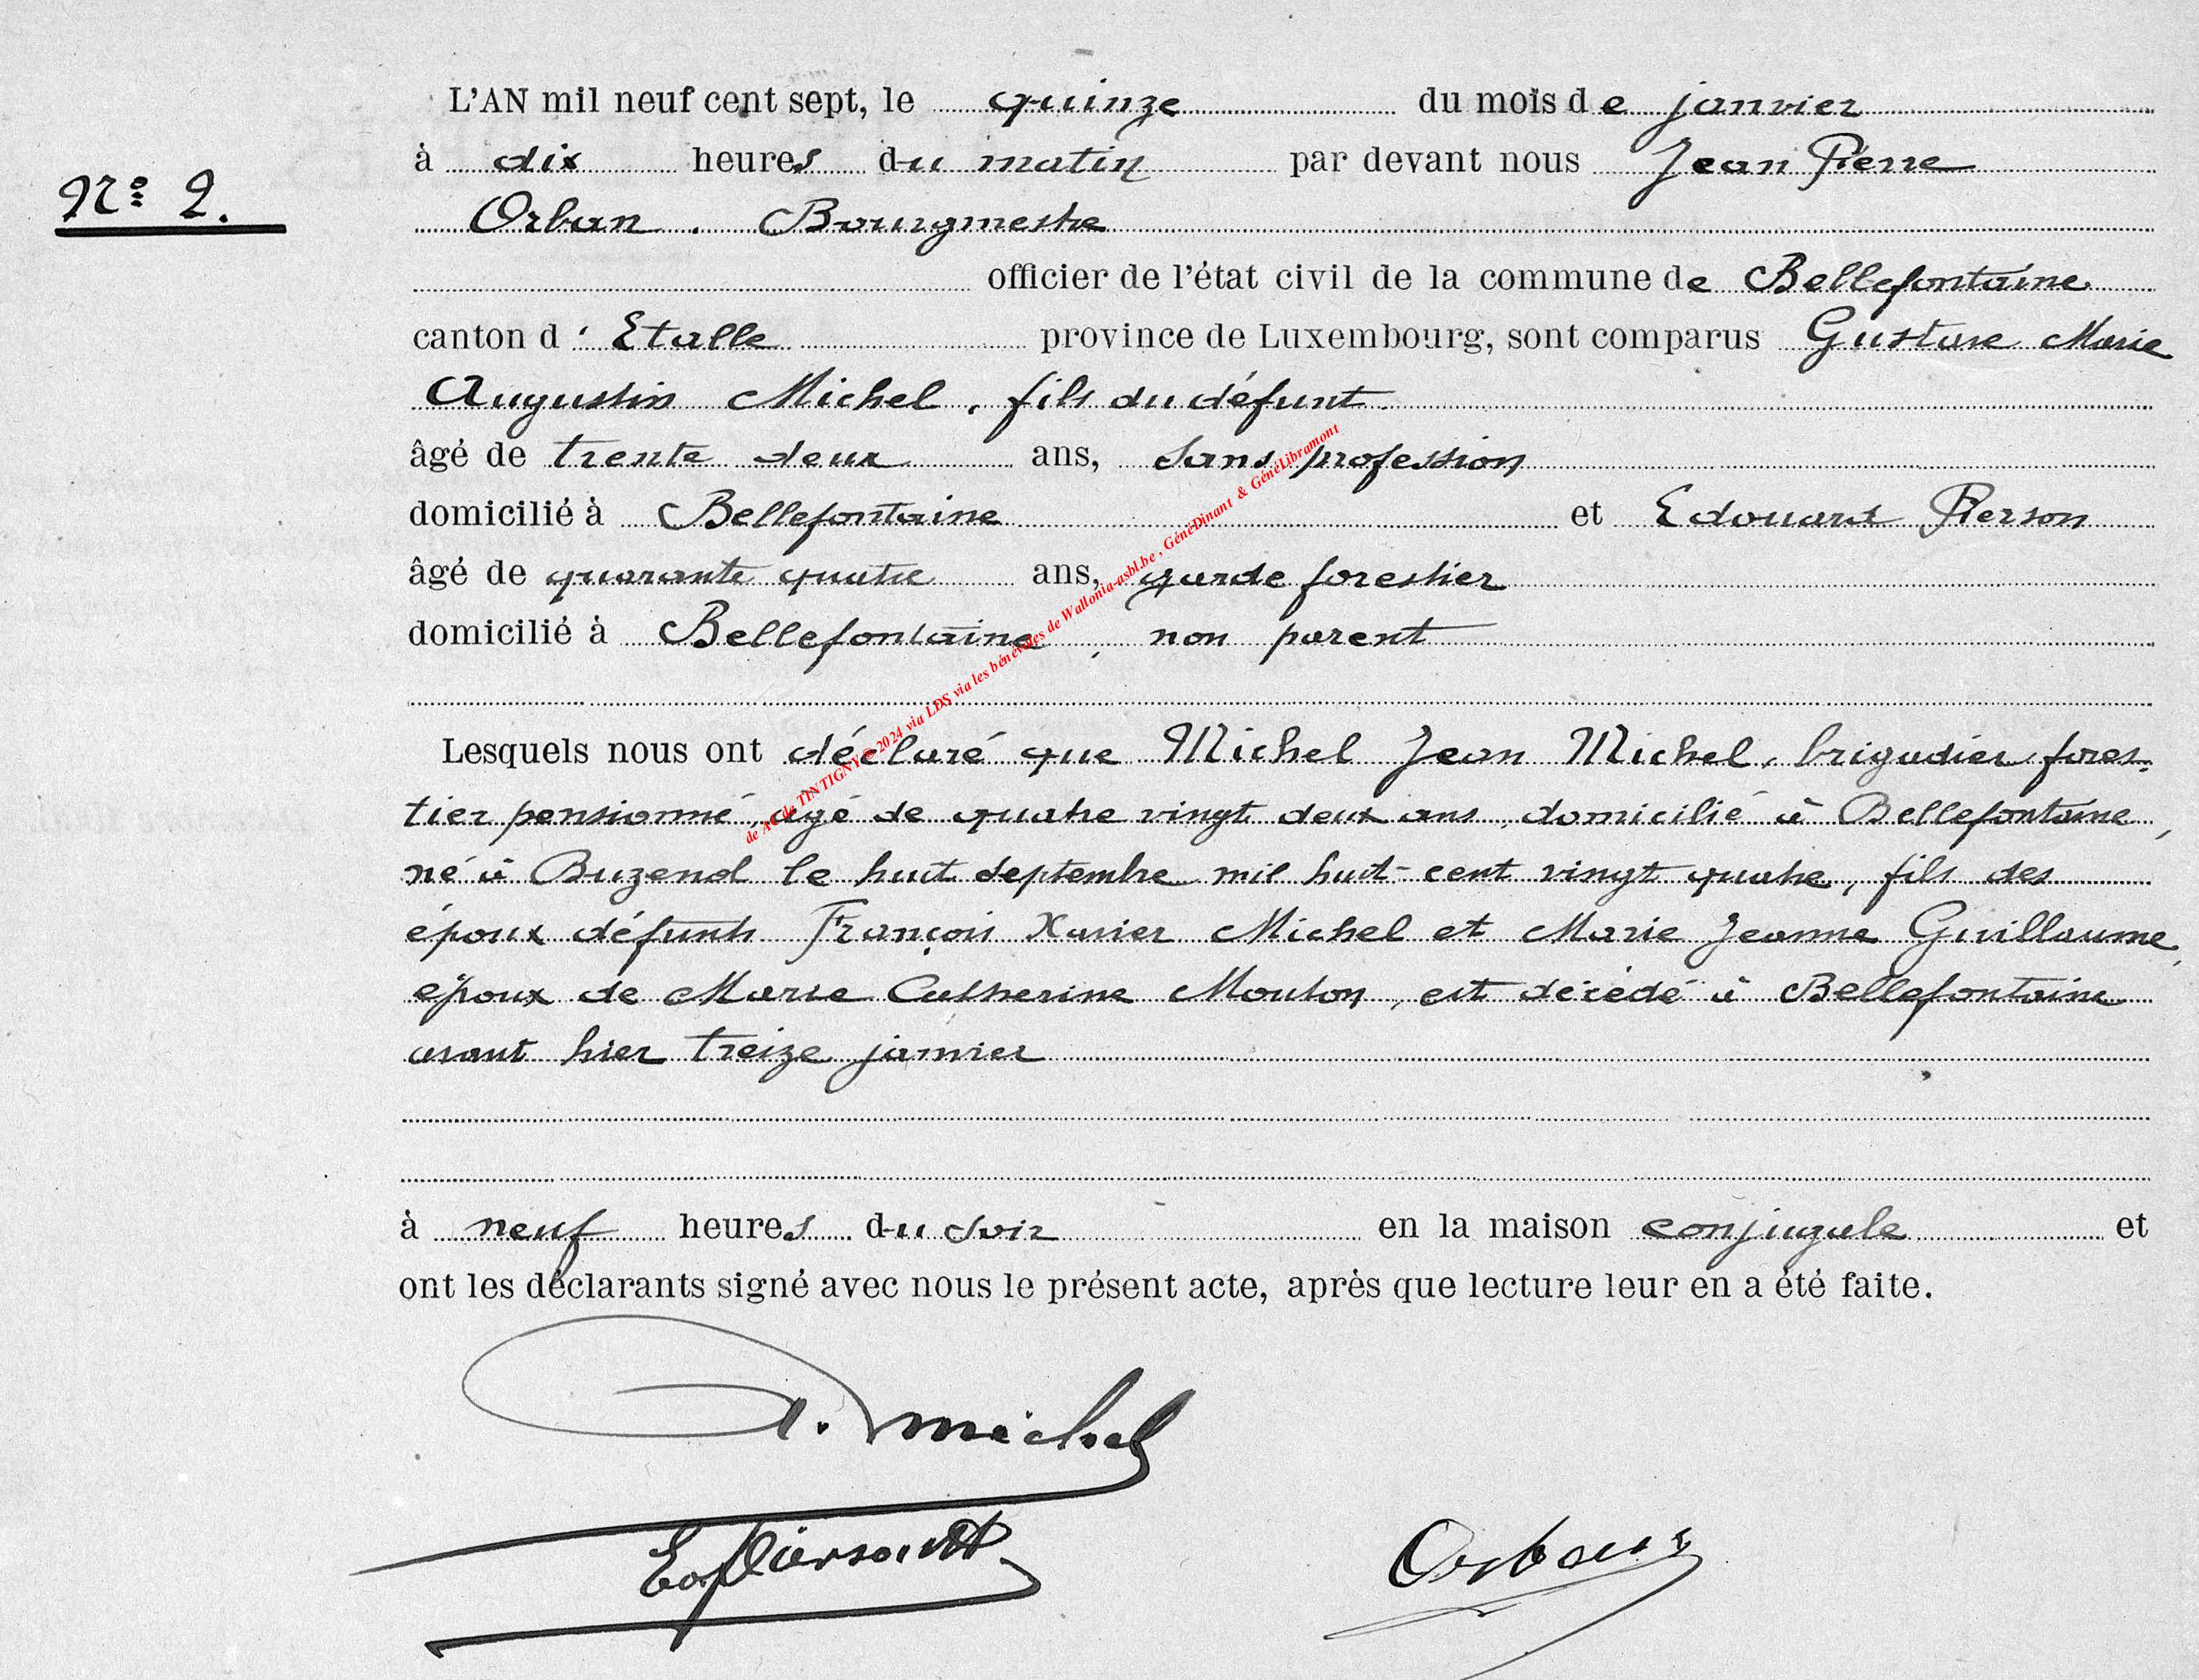 L'AN mil neuf cent sept, le quinze du mois de janvier
N° 2.
à dix heures du matin par devant nous Jean Pierre
Orban, Bourgmestre
officier de l'état civil de la commune de Bellefontaine
canton d'Etalle province de Luxembourg, sont comparus Gustave Marie
Augustin Michel, fils du défunt
âgé de trente deux ans, sans profession
domicilié à Bellefontaine et Edouard Pierson
âgé de quarante quatre ans, garde forestier
domicilié à Bellefontaine, non parent
Lesquels nous ont déclaré que Michel Jean Michel, brigadier fores-
tier pensionné, âgé de quatre vingt deux ans, domicilié à Bellefontaine,
né à Buzenol le huit septembre mil huit-cent vingt quatre, fils des
époux défunts François Xavier Michel et Marie Jeanne Guillaume,
époux de Marie Catherine Mouton, est décédé à Bellefontaine
avant hier treize janvier
à neuf heures du soir en la maison conjugale et
ont les déclarants signé avec nous le présent acte, après que lecture leur en a été faite.
A. Michel
Ed Pierson
Orban
de AC de TINTIGNY © 2024 via LDS via les bénévoles de Wallonia-asbl.be, GénéDinant & GénéLibramont